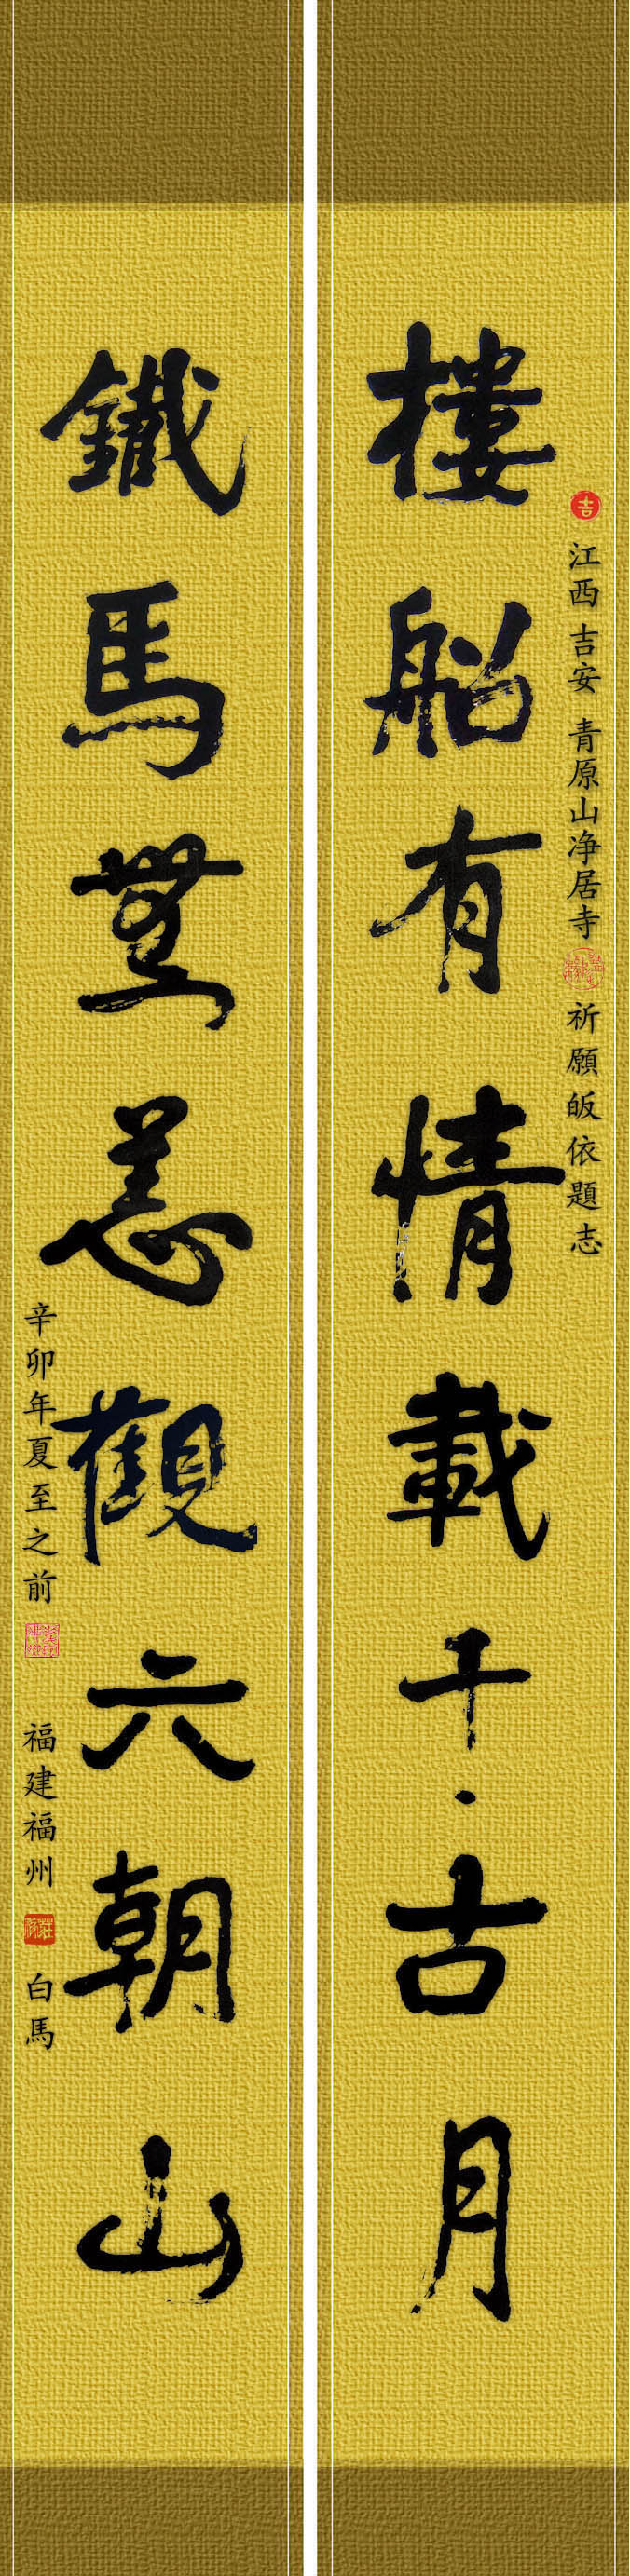 吉
江西 吉安 青原山净居寺 祈願皈依題志
樓船有情載千古月
鐵馬無恙觀六朝山
辛卯年夏至之前 福建福州 白馬